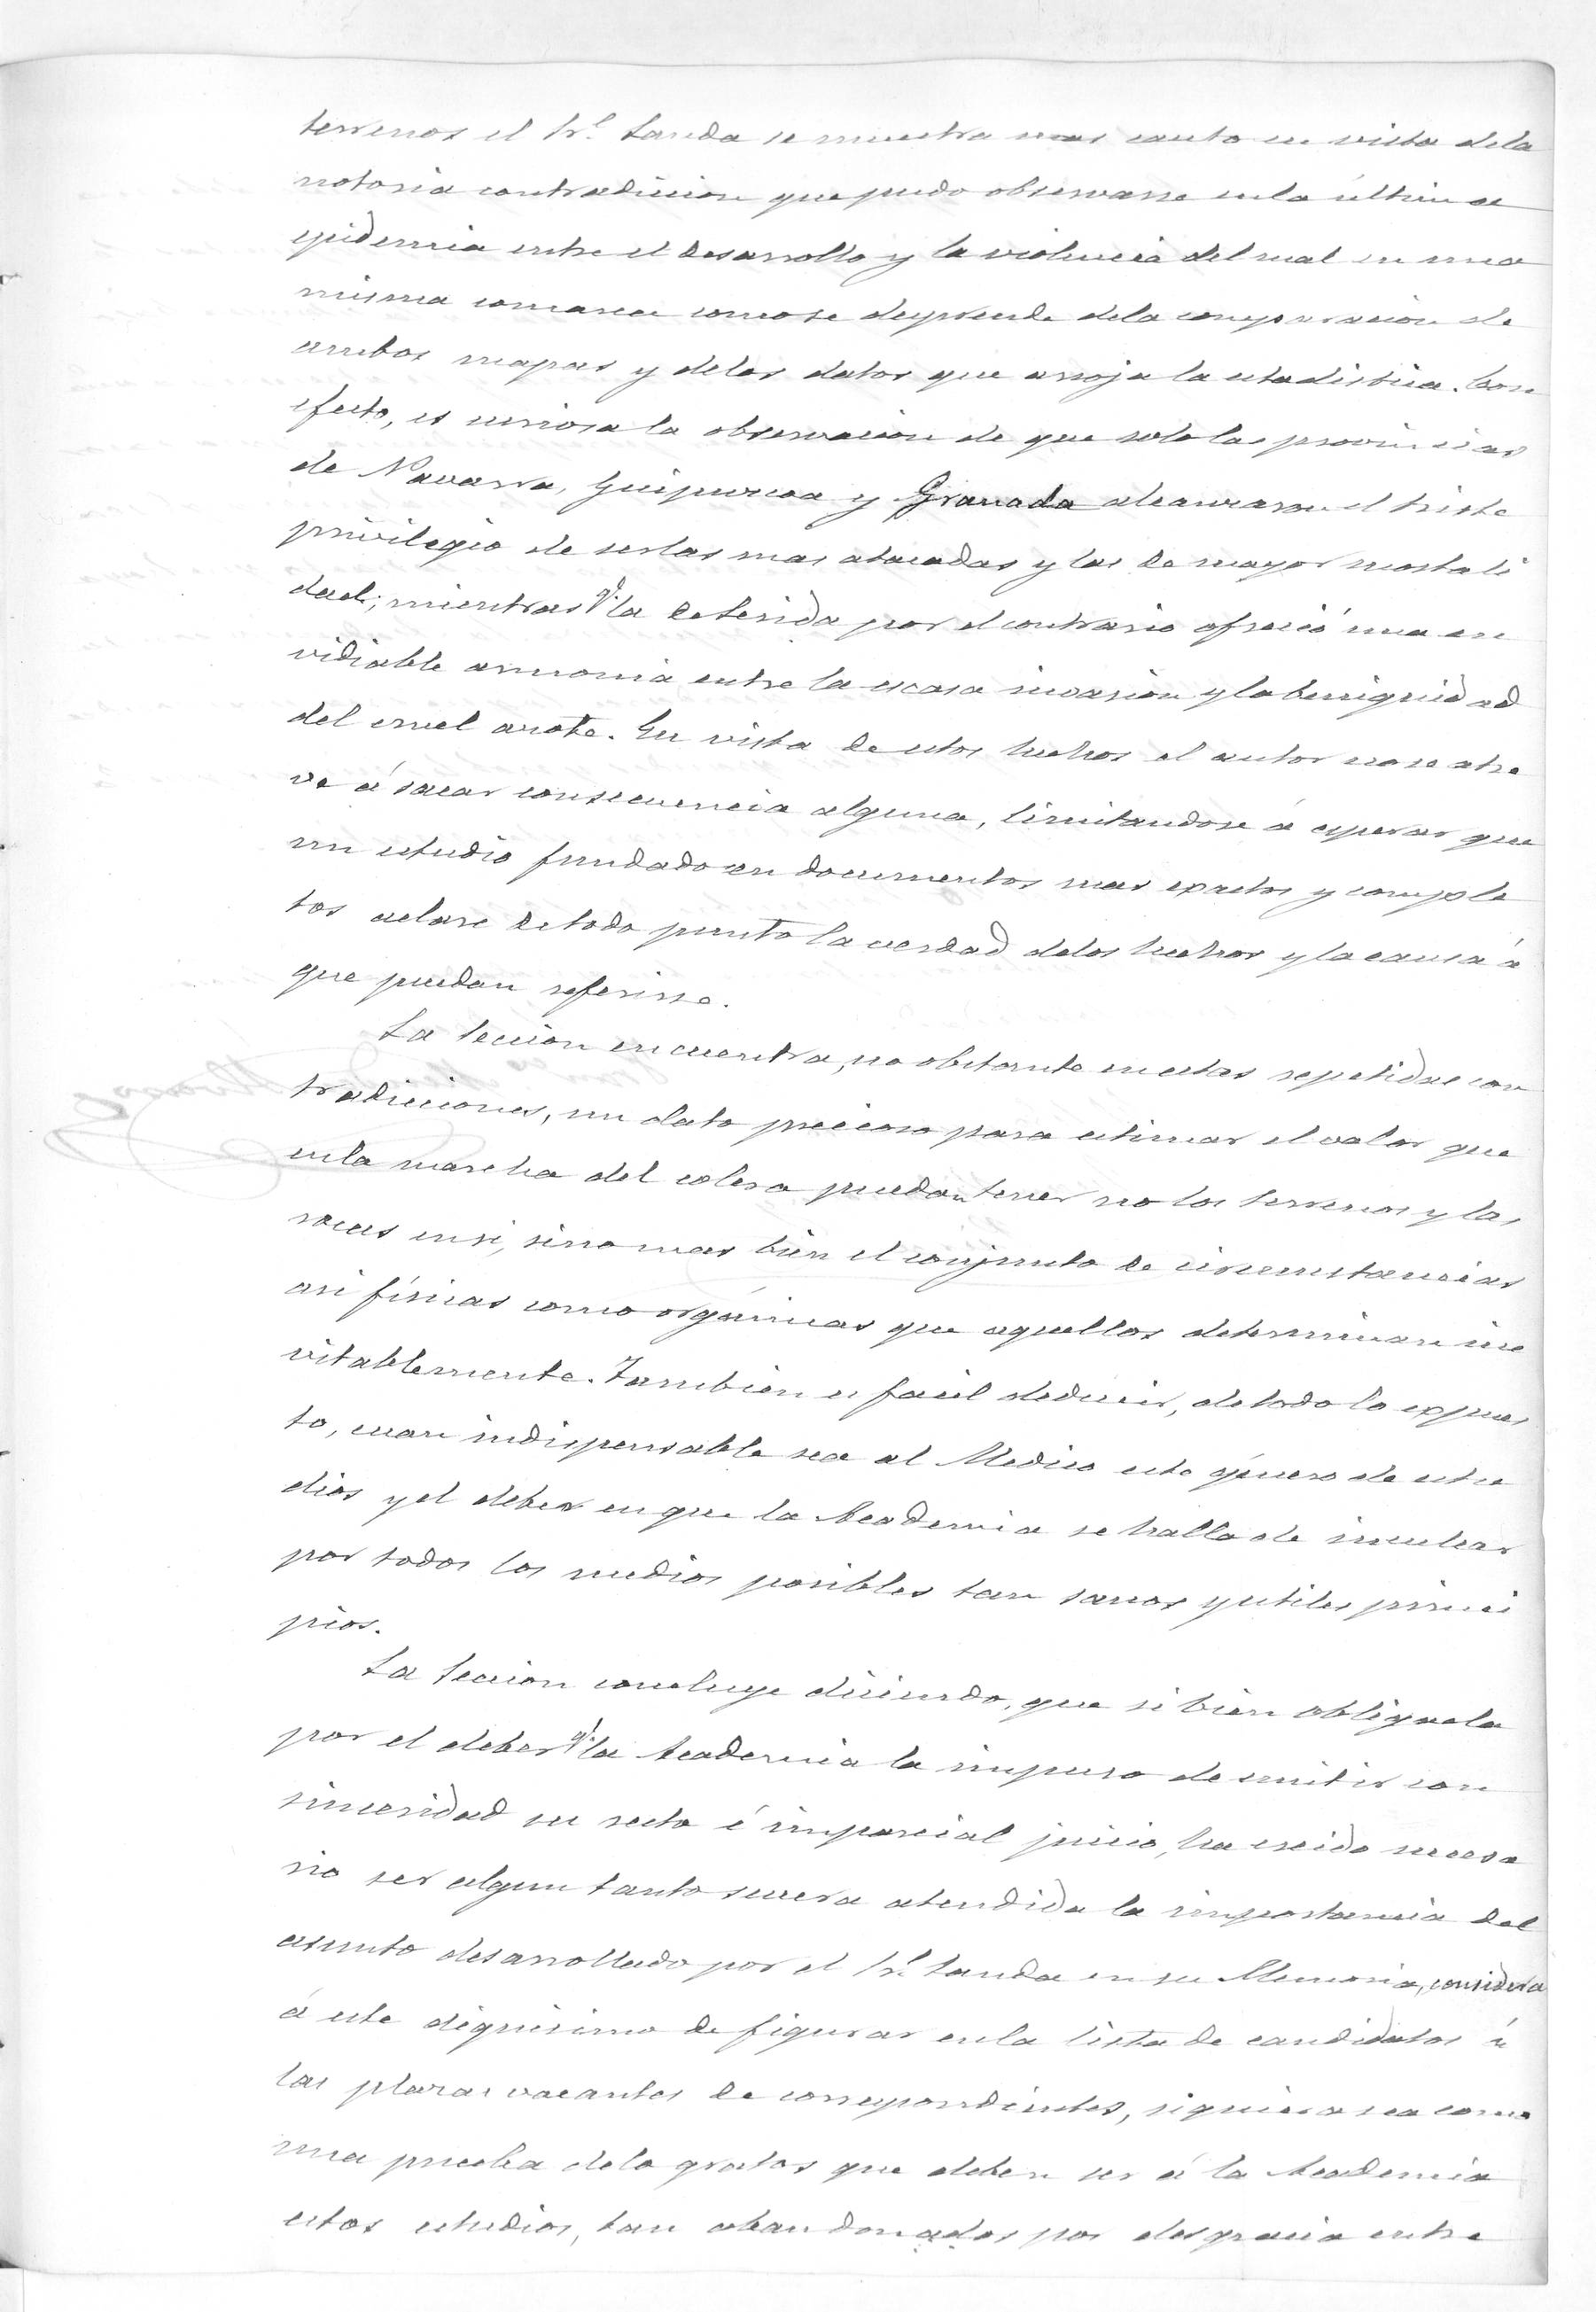 terrenos el Sr. Landa se muestra mas cauto en vista dela
notoria contradiccion que pudo observarse enla última
epidemia entre el desarrollo y la violencia del mal en una
misma comarca como se desprende dela comparacion de
ambos mapas y delos datos que arroja la estadistica. Con
efecto, es curiosa la observacion de que solo las provincias
de Navarra, Guipuzcoa y Granada alcanzaron el triste
privilegio de serlas mas atacadas y las de mayor mortali
dad; mientras q.e la de Lerida por el contrario ofreció una en
vidiable armonia entre la escasa invasion y la benignidad
del cruel azote. En vista de estos hechos el autor no se atre
ve á sacar consecuencia alguna, limitandose á esperar que
un estudio fundado en documentos mas exactos y comple
tos aclare de todo punto la verdad delos hechos y la causa á
que puedan referirse.
La Seccion encuentra, no obstante en estas repetidas con
tradicciones, un dato precioso para estimar el valor que
enla marcha del colera puedan tener no los terrenos y las
rocas ensi, sino mas bien el conjunto de circunstancias
asi físicas como orgánicas que aquellos determinan ine
vitablemente. Tambien es facil deducir, de todo lo expues
to, cuan indispensable sea al Medico este género de estu
dios y el deber en que la Academia se halla de inculcar
por todos los medios posibles tan sanos y utiles princi
pios.
La Seccion concluye diciendo, que si bien obligada
por el deber q.e la Academia la impuso de emitir con
sinceridad su recto é imparcial juicio, ha creido necesa
rio ser algun tanto severa atendida la importancia del
asunto desarrollado por el Sr. Landa en su Memoria, considera
á este dignisimo de figurar enla lista de candidatos á
las plazas vacantes de corresponsdientes, siquiera sea como
una prueba delo gratos que deben ser á la Academia
estos estudios, tan abandonados por desgracia entre